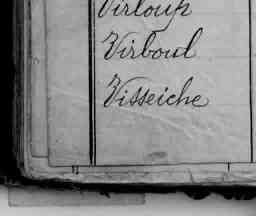 Virloup
Virboul
Visseiche